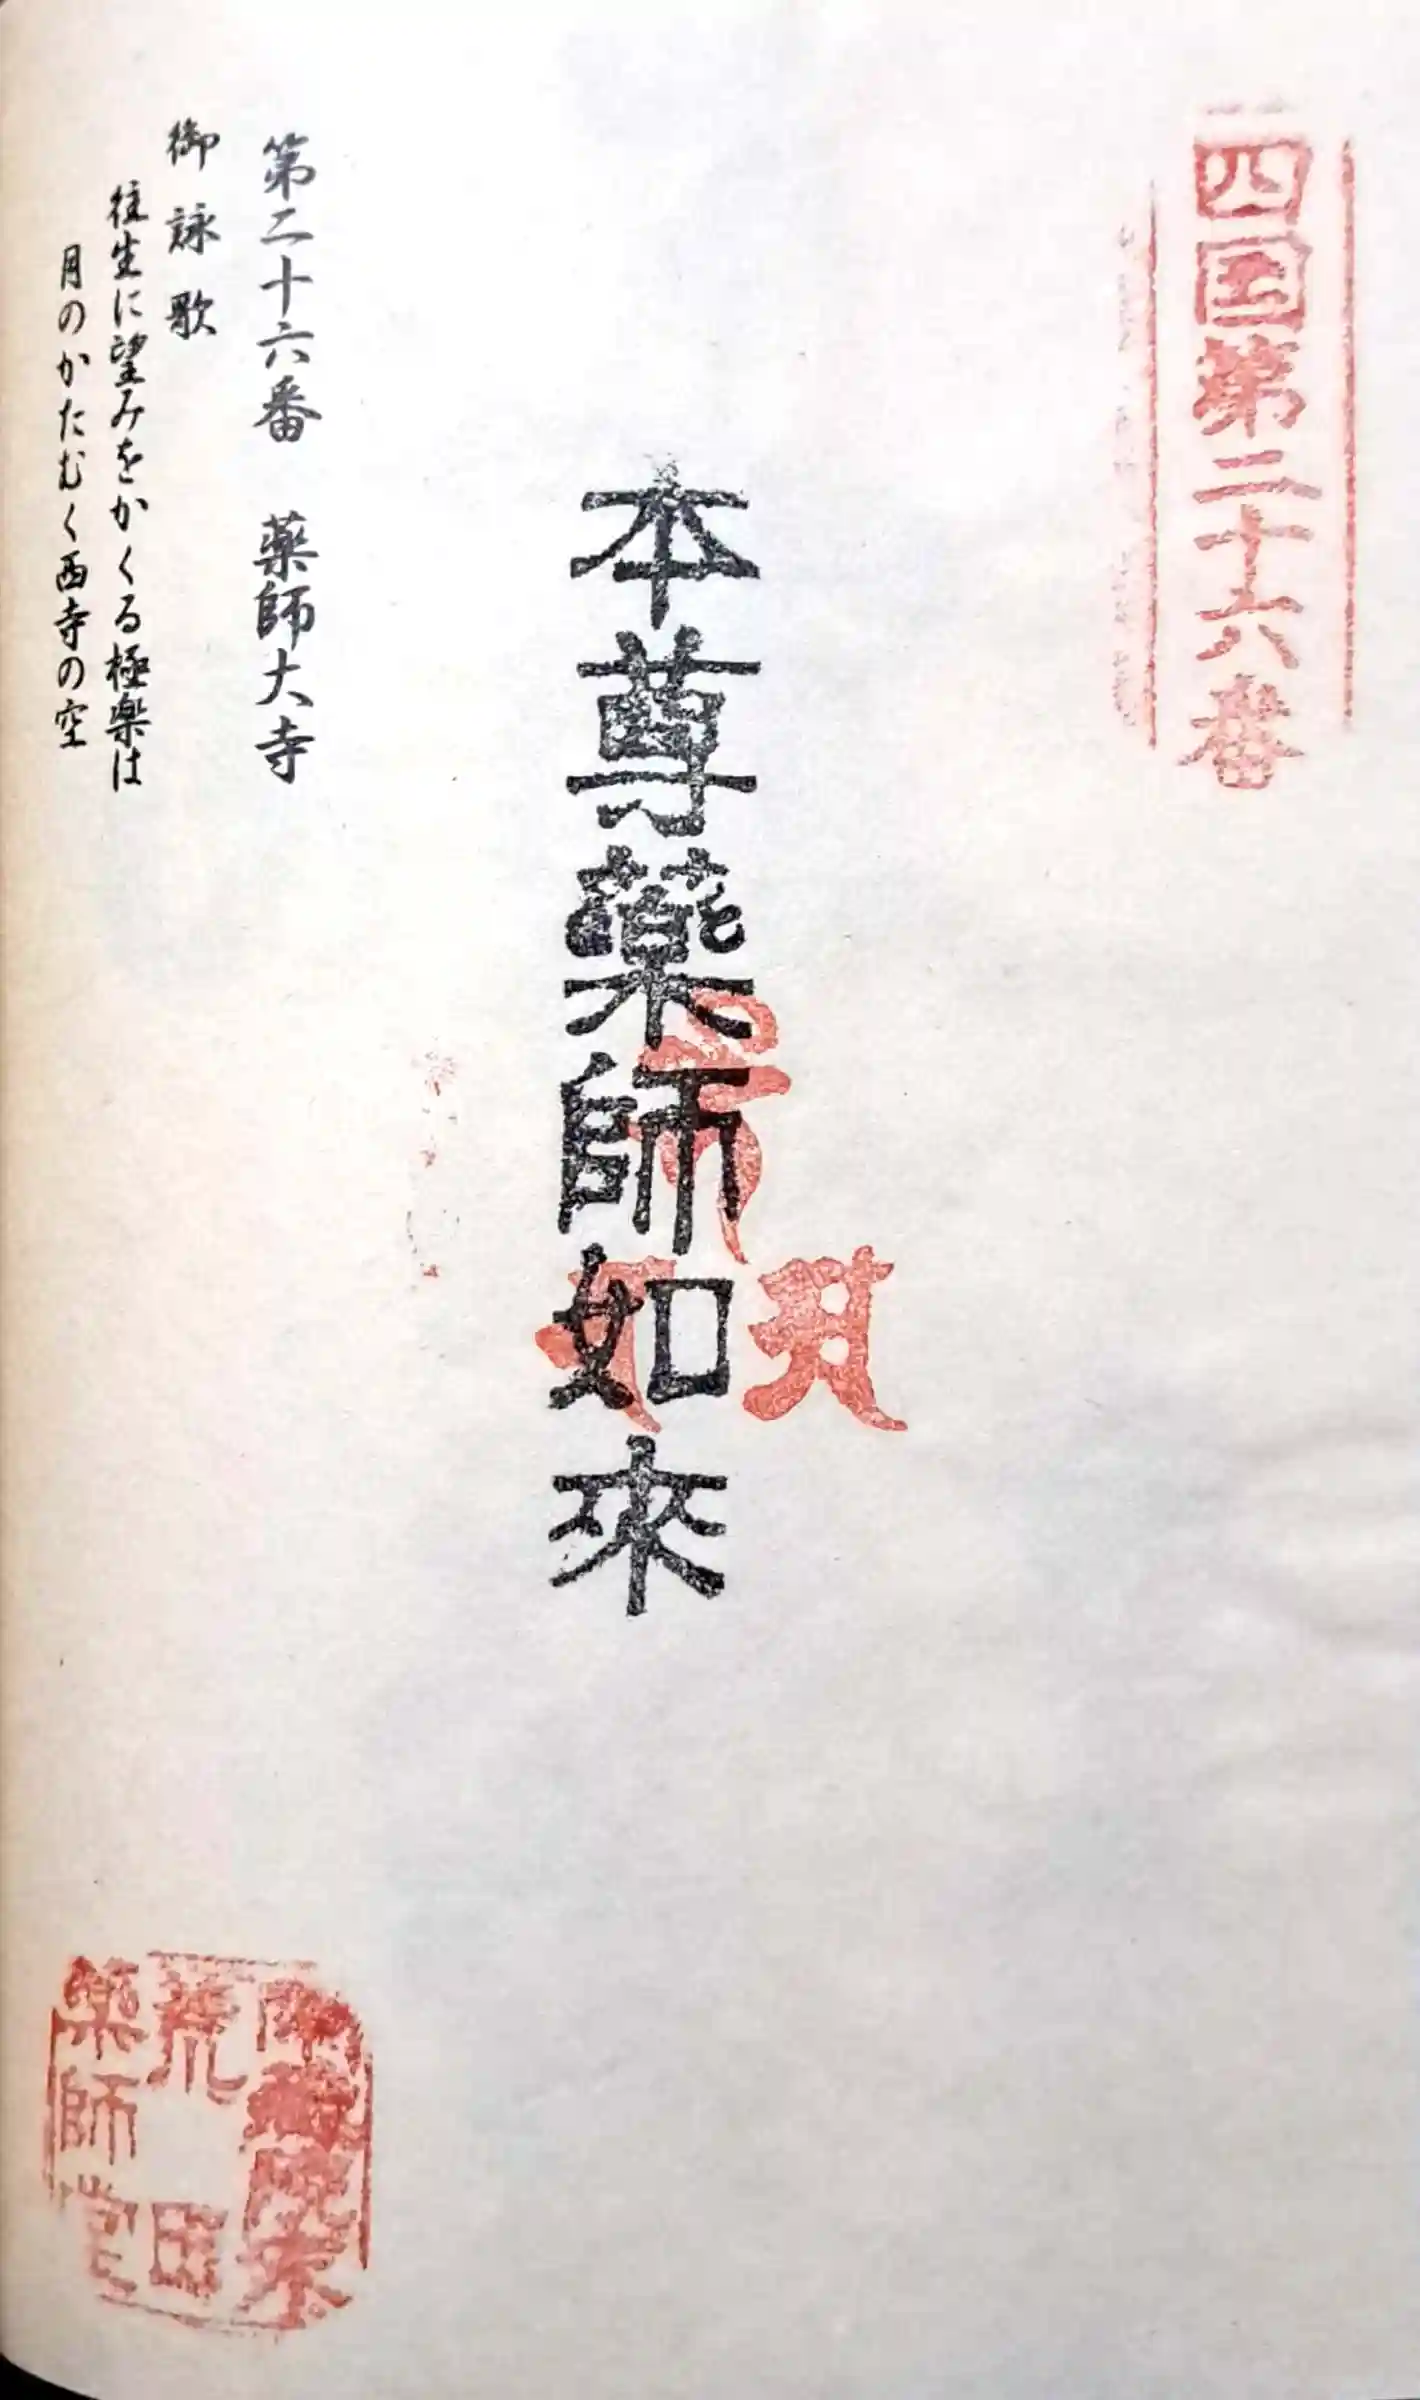 四国第二十六番
本尊薬師如來
第二十六番　薬師大寺
御詠歌
往生に望みをかくる極楽は
月のかたむく西寺の空
荒田
薬師堂